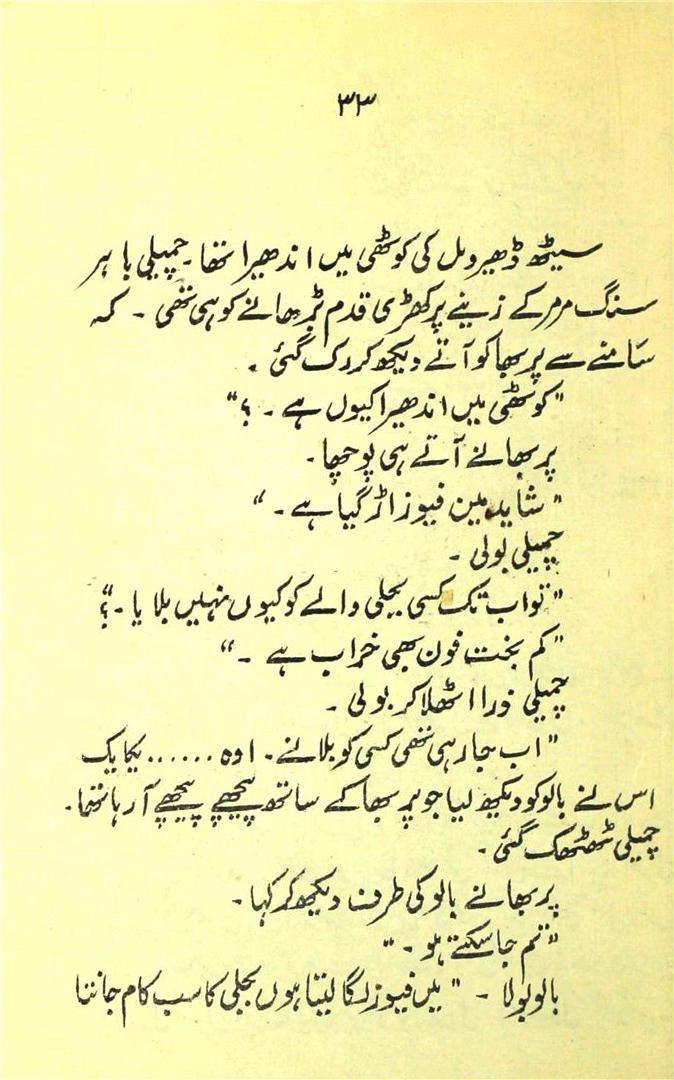 ۳۳
سیٹھ ڈھیرومل کی کوٹھی میں اندھیرا تھا۔ چمپیلی باہر
سنگ مرمر کے زینے پر کھڑی قدم بڑھانے کو ہی تھی ۔ کہ
سامنے سے پربھا کو آتے دیکھ کر رک گئی ۔
"کوٹھی میں اندھیرا کیوں ہے ۔ ؟"
پربھا نے آتے ہی پوچھا۔
"شاید مین فیوز اڑ گیا ہے ۔"
چمپیلی بولی ۔
"تو اب تک کسی بجلی والے کو کیوں نہیں بلایا ۔؟"
"کم بخت فون بھی خراب ہے ۔"
چمپیلی ذرا اٹھلا کر بولی ۔
"اب جا رہی تھی کسی کو بلانے ۔ اوہ ...... یکایک
اس نے بالو کو دیکھ لیا جو پربھا کے ساتھ پیچھے پیچھے آ رہا تھا۔
چمپیلی ٹھٹھک گئی ۔
پربھا نے بالو کی طرف دیکھ کر کہا ۔
"تم جا سکتے ہو ۔"
بالو بولا ۔ "میں فیوز لگا لیتا ہوں بجلی کا سب کام جانتا